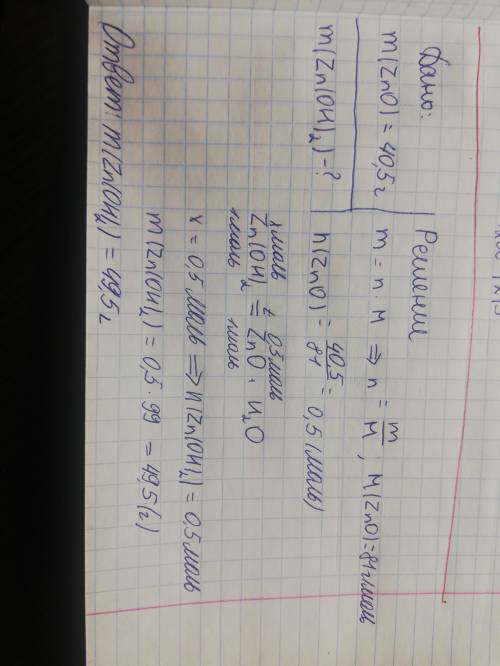 Дано:
m(ZnO) = 40,5 г
m(Zn(OH)₂) - ?
Решение
m = n · M ⇒ n = m/M ; M(ZnO) = 81 г/моль
n(ZnO) = 40,5/81 = 0,5 (моль)
x моль t 0,5 моль
Zn(OH)₂ = ZnO + H₂O
1 моль 1 моль
x = 0,5 моль ⇒ n(Zn(OH)₂) = 0,5 моль
m(Zn(OH)₂) = 0,5 · 99 = 49,5 (г)
Ответ: m(Zn(OH)₂) = 49,5 г